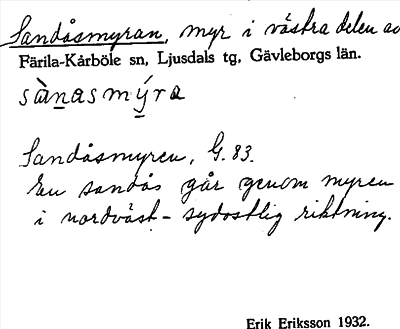 Sandåsmyran, myr i västra delen av
Färila-Kårböle sn, Ljusdals tg, Gävleborgs län.
sànasmýra
Sandåsmyren, G. 83.
En sandås går genom myren
i nordväst-sydostlig riktning.
Erik Eriksson 1932.